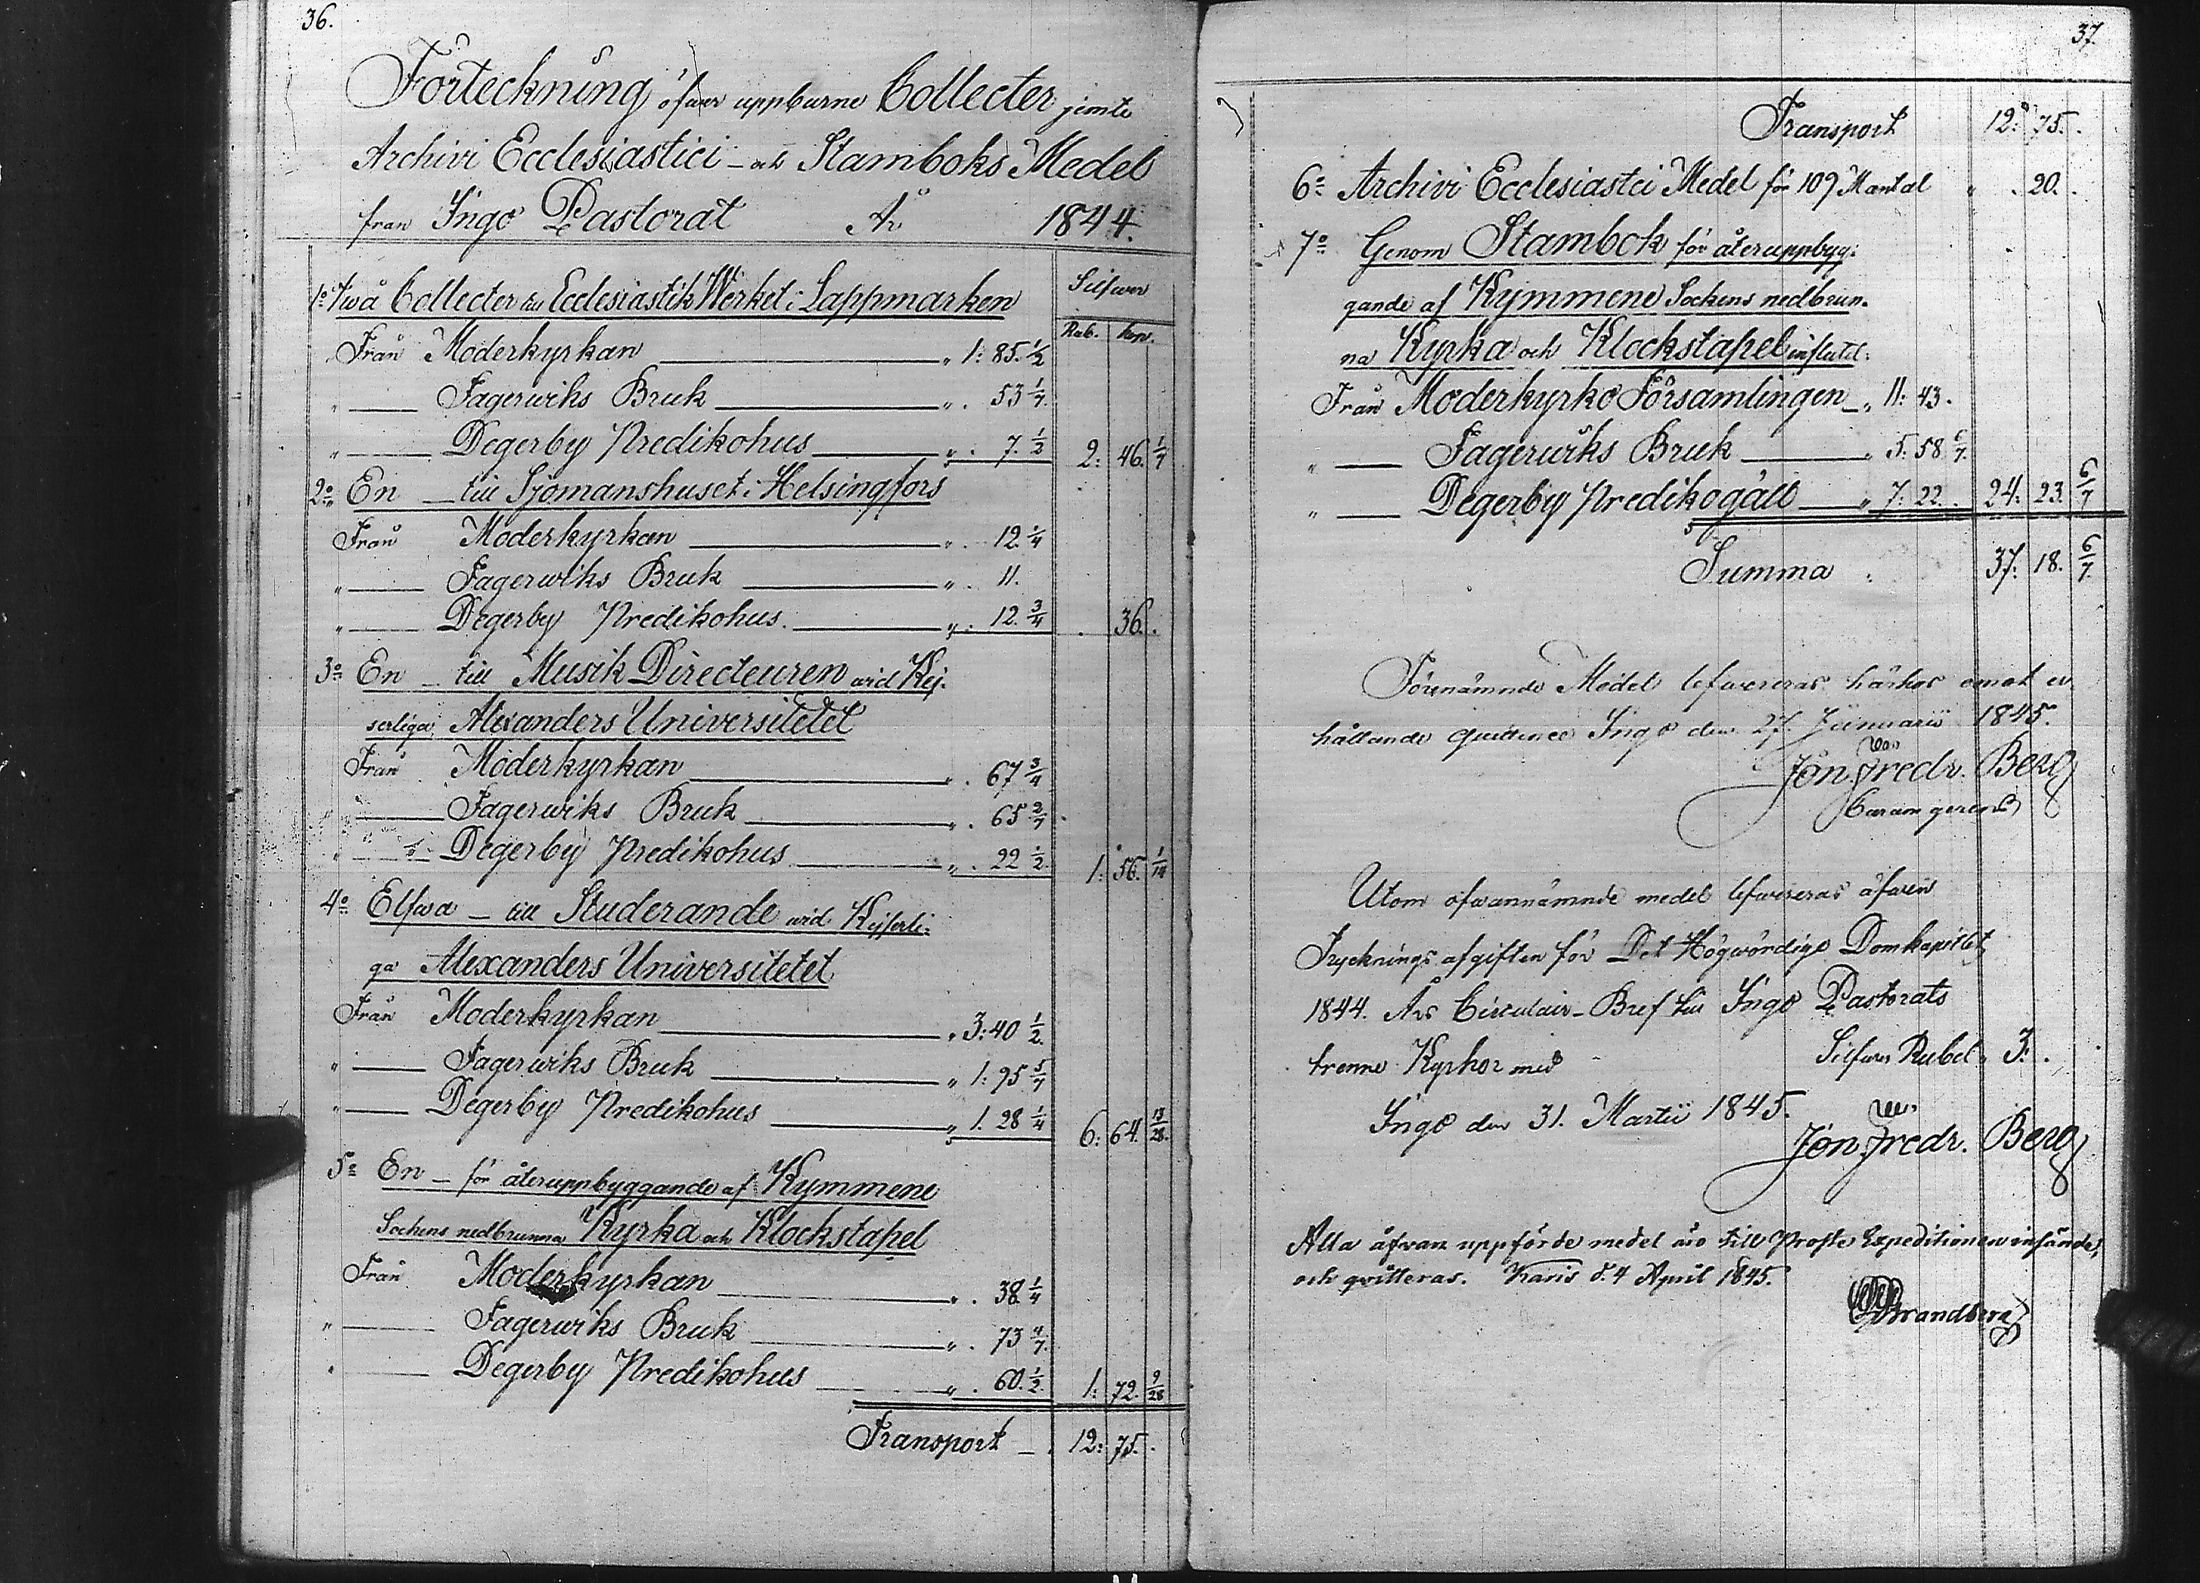 36.
Förteckning öfwer uppburne Collecter jemte
Archivi Ecclesiastici - och Stamboks Medel
från Ingo Pastorat År 1844.
Silfwer
Rub. kop.
1o Twå Collecter till Ecclesiastik Werket i Lappmarken
Från Moderkyrkan „ 1: 85. 1/2
„ Fagerwiks Bruk „ . 53 1/7.
„ Degerby Predikohus „ . 7. 1/2 2: 46. 1/7
2o En - till Sjömanshuset i Helsingfors
Från Moderkyrkan „ . 12. 1/4
„ Fagerwiks Bruk „ . 11.
„ Degerby Predikohus. „ . 12. 3/4 . 36. .
3o En - till Musik Directeuren wid Kej-
serliga Alexanders Universitetet
Från Moderkyrkan „ . 67 3/4
„ Fagerwiks Bruk „ . 65 2/7
„ Degerby Predikohus „ . 22 1/2. 1: 56. 1/14
4o Elfwa - till Studerande wid Kejserli-
ga Alexanders Universitetet
Från Moderkyrkan „ 3: 40 1/2.
„ Fagerwiks Bruk „ 1: 95 5/7
„ Degerby Predikohus „ 1. 28 1/4 6: 64. 13/28.
5o En - för återuppbyggande af Kymmene
Sockens nedbrunna Kyrka och Klockstapel
Från Moderkyrkan „ . 38. 1/4
„ Fagerwiks Bruk „ . 73 4/7.
„ Degerby Predikohus „ . 60. 1/2. 1: 72. 9/28
Transport - 12: 75. .
37.
Transport 12: 75. .
6o Archivi Ecclesiastci Medel för 109 Mantal „ . 20. .
7o Genom Stambok för återuppbyg-
gande af Kymmene Sockens nedbrun-
na Kyrka och Klockstapel influtit:
Från Moderkyrko Församlingen „ 11: 43.
„ Fagerwiks Bruk „ 5: 58 6/7.
„ Degerby Predikogäll „ 7: 22. . 24: 23 6/7
Summa 37: 18. 6/7.
Förenämnde Medel lefwereras härhos emot er-
hållande quittence Ingo den 27. Januarii 1845.
Jon. Fredr. Berg
Curam gerens
Utom ofwannämnde medel lefwereras äfwen
Tryckningsafgiften för Det Högwördige Domkapitlets
1844. Års Circulair-Bref till Ingo Pastorats
trenne Kyrkor med Silfwer Rubel „ 3: .
Ingo den 31. Martii 1845.
Jon. Fredr. Berg
Alla åfvan uppförde medel äro till Prosts Expeditionen insände,
och qvitteras. Karis d. 4 April 1845.
Strandberg